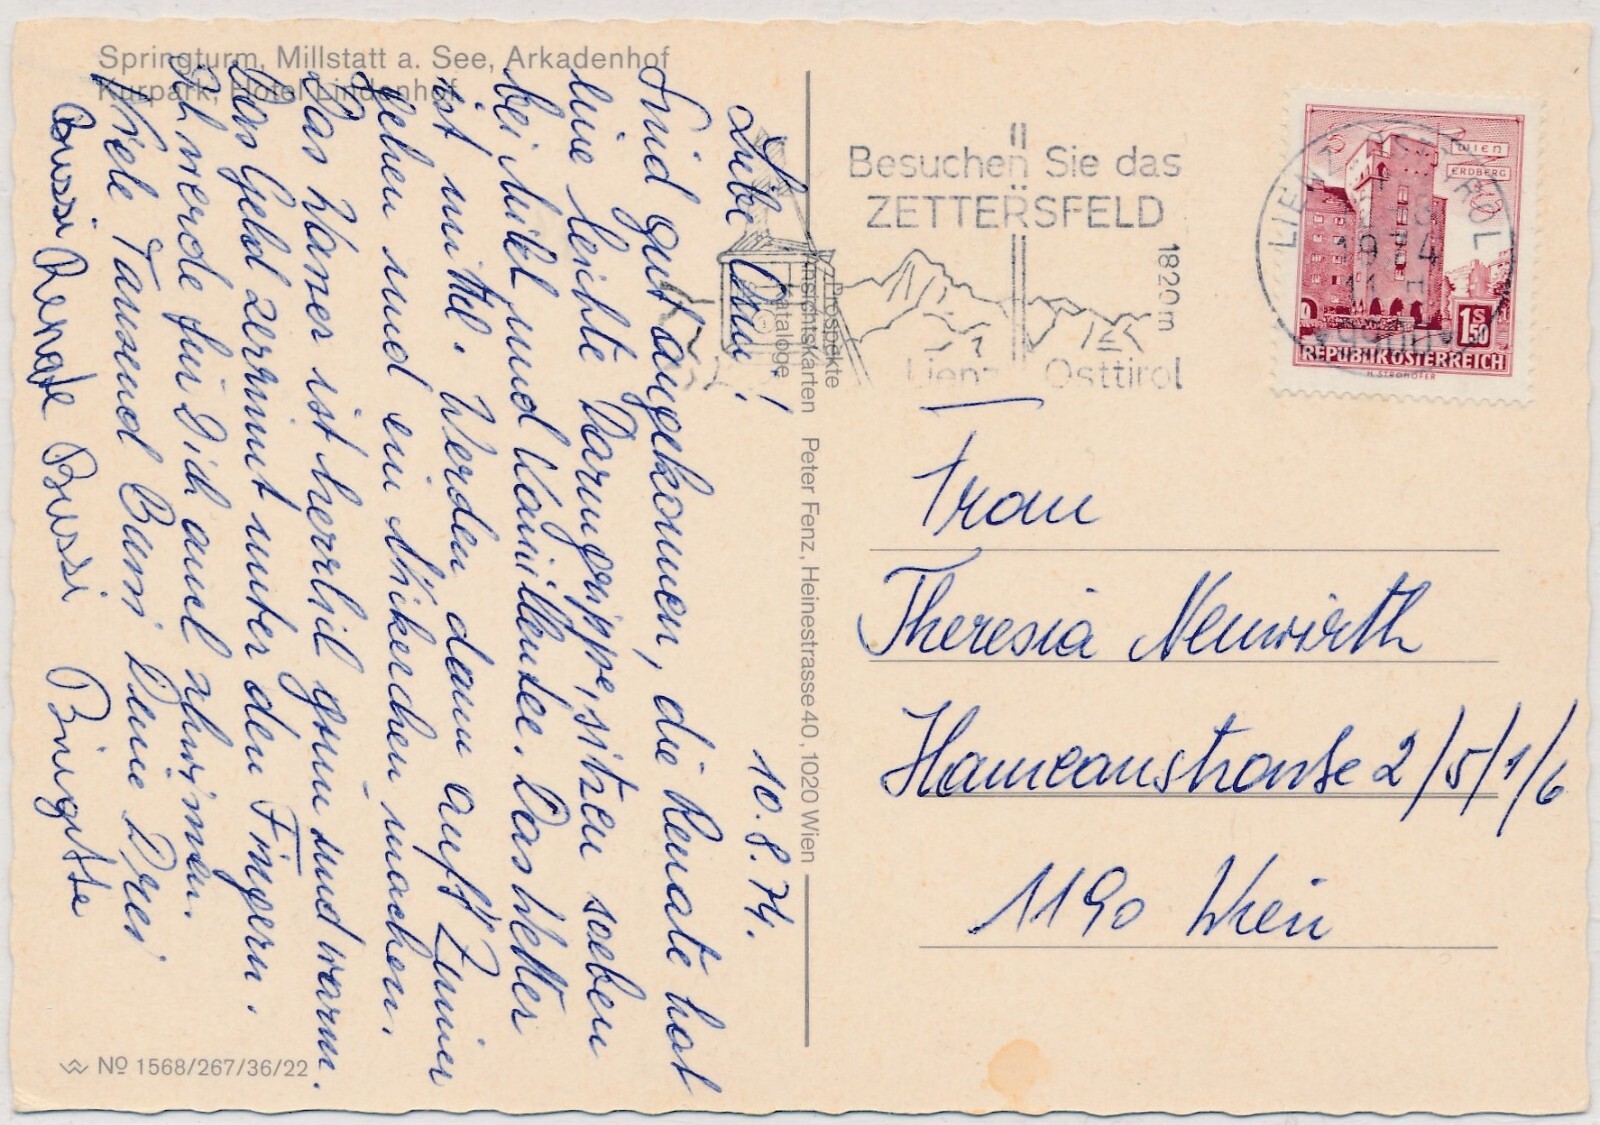 Springturm, Millstatt a. See, Arkadenhof
Kurpark, Hotel Lindenhof
10.8.74.
Liebe Omi!
Sind gut angekommen, die Renate hat
eine leichte Darmgrippe, sitzen soeben
bei Milch und Kamillentee. Das Wetter
ist mittel. Werden dann aufs Zimmer
gehen und ein machen.
Das Wasser ist herrlich grün und warm.
Das Geld zerrinnt unter den Fingern.
Ich werde für Dich auch schwimmen.
Viele Tausend Bussi Deine Drei
Bussi Renate Bussi Brigitte
Prospekte
Ansichtskarten
Kataloge
Peter Fenz, Heinestrasse 40, 1020 Wien
№ 1568/267/36/22
Besuchen Sie das
ZETTERSFELD
1820m
Lienz Osttirol
LIENZ OSTTIROL
1974
WIEN
ERDBERG
1S50
REPUBLIK ÖSTERREICH
H. STROHOFER
Frau
Theresia Neuwirth
Hameaustraße 2/5/1/6
1190 Wien